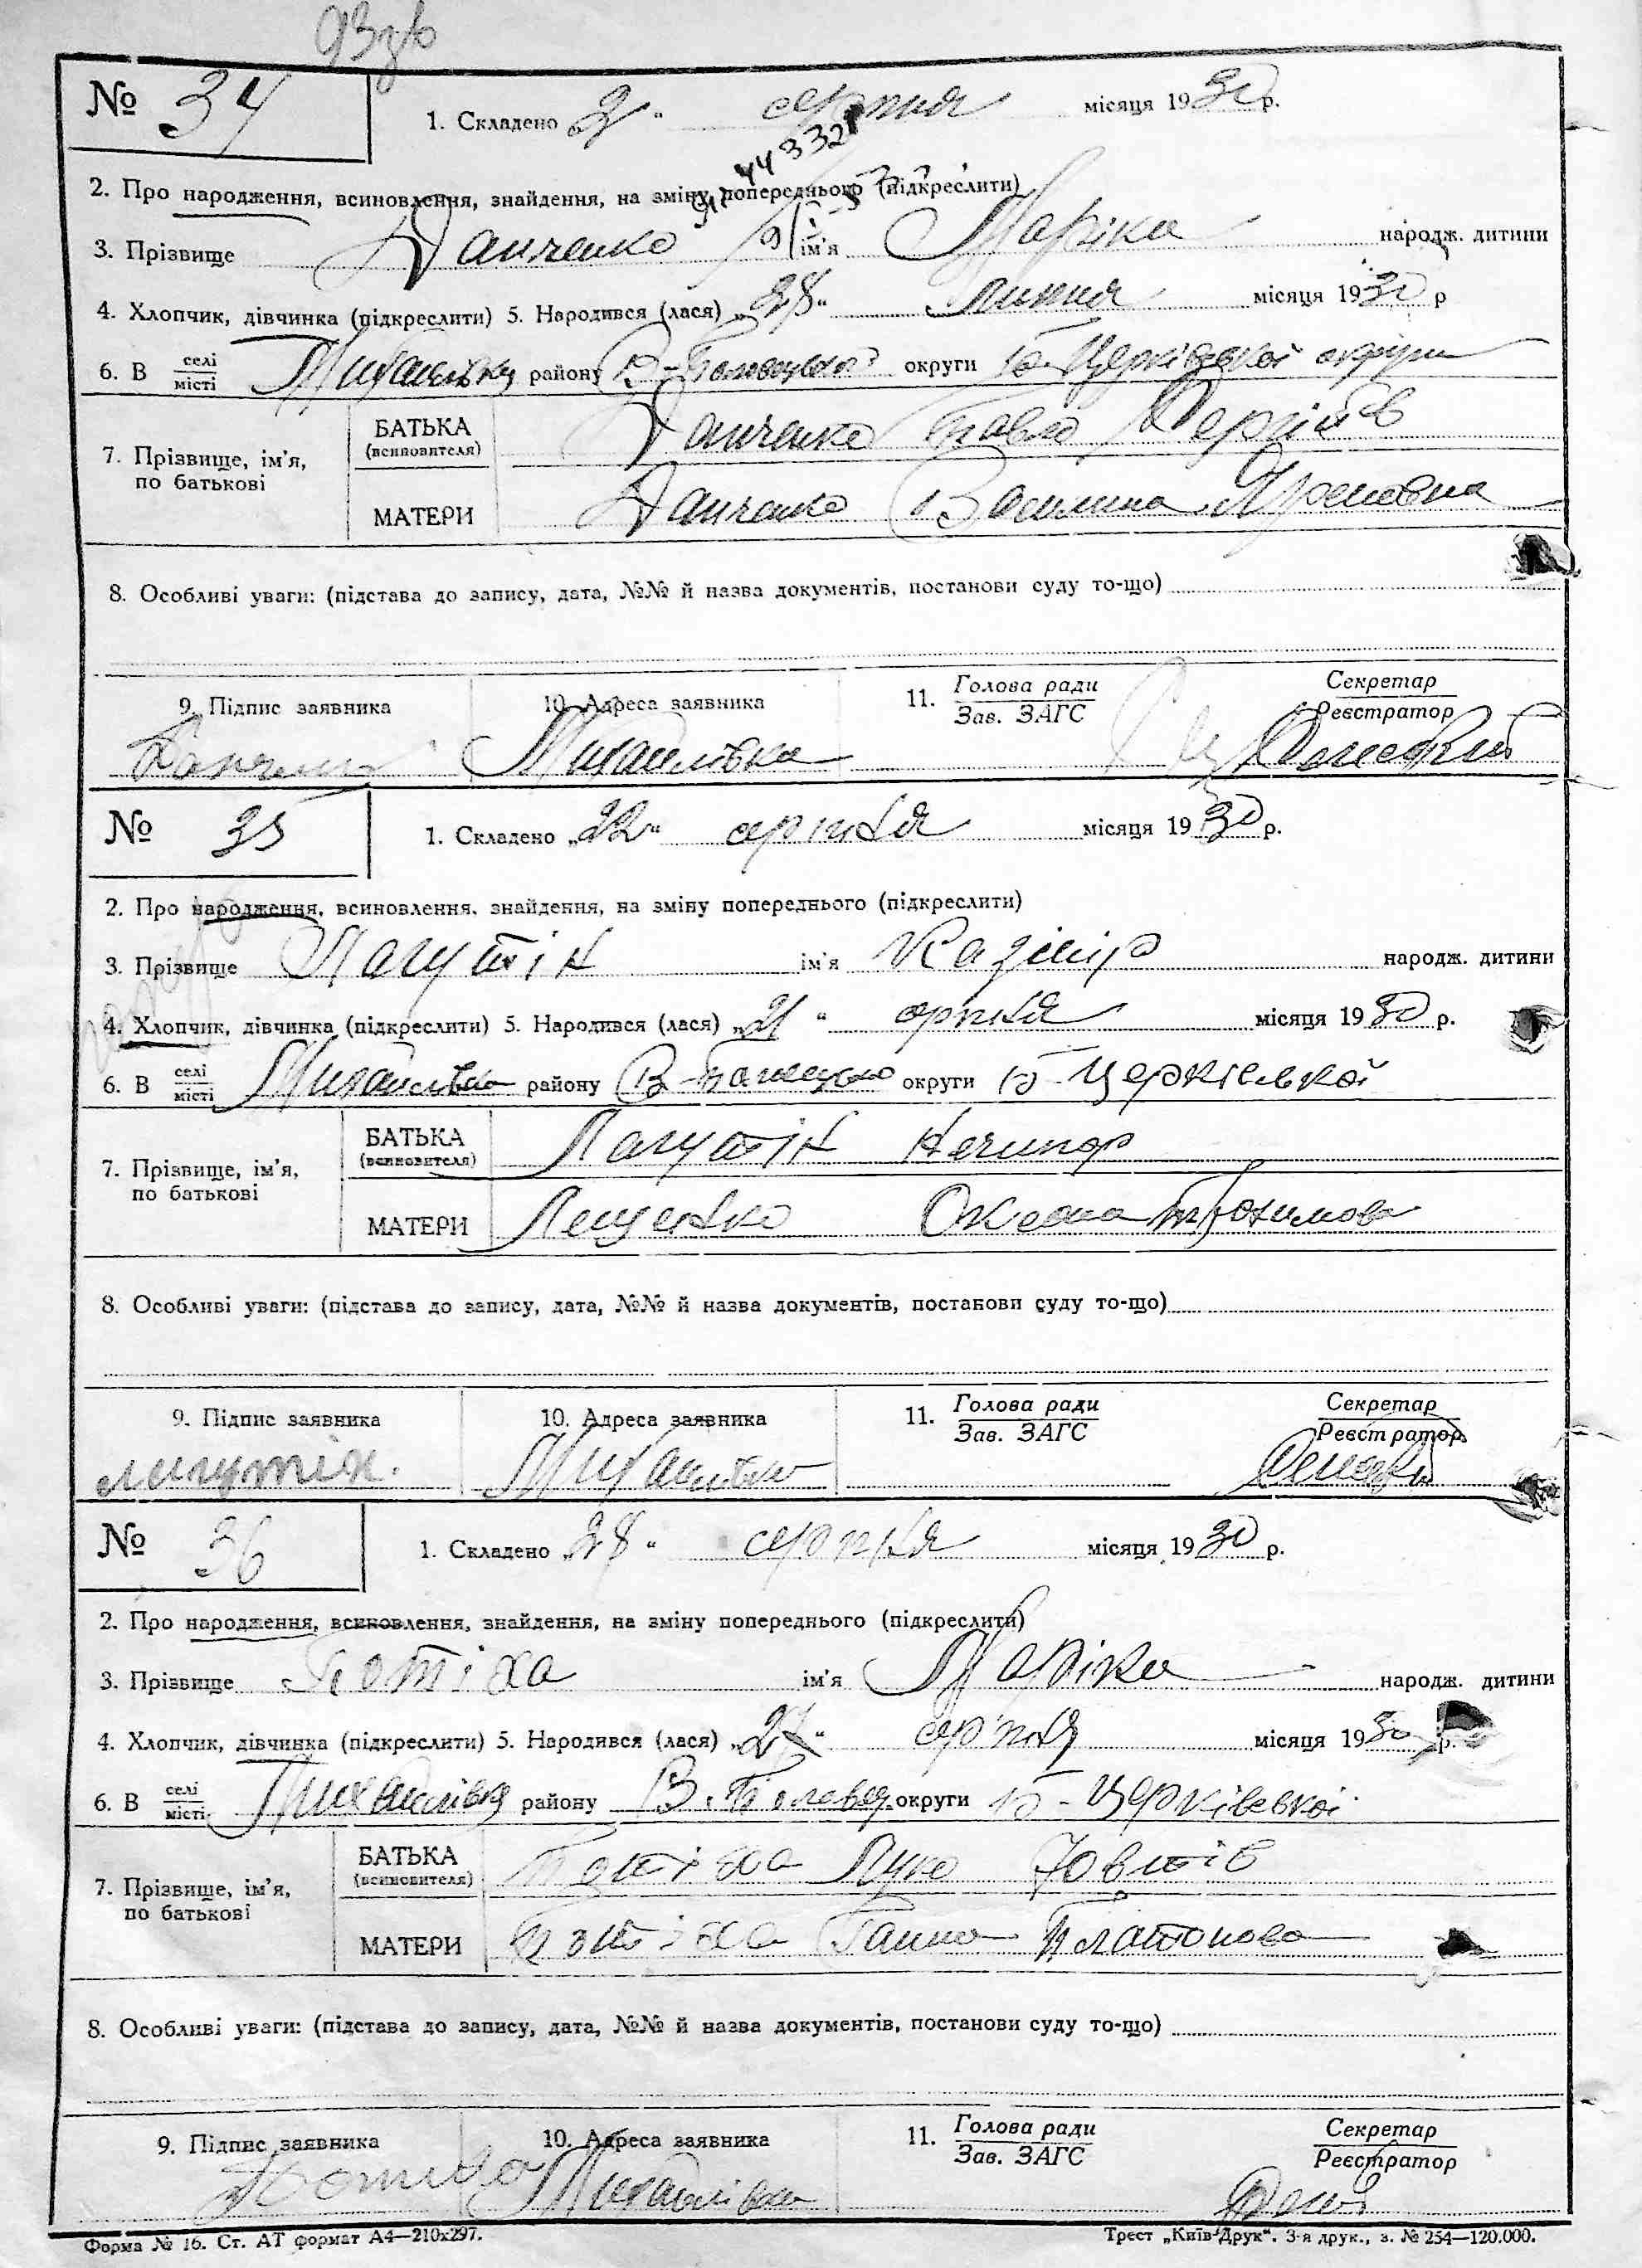 № 34
1. Складено „2“ серпня місяця 1930 р.
2. Про народження, всиновлення, знайдення, на зміну попереднього (підкреслити)
3. Прізвище Данченко ім'я Маріка народж. дитини
4. Хлопчик, дівчинка (підкреслити) 5. Народився (лася) „28“ липня місяця 1930 р
6. В селі місті Михайлівка району В-Половецького округи Б-Церківської округи
7. Прізвище, ім'я, по батькові
БАТЬКА (всиновителя) Данченко Павло Сергіїв
МАТЕРИ Данченко Василина
8. Особливі уваги: (підстава до запису, дата, №№ й назва документів, постанови суду то-що)
9. Підпис заявника 10. Адреса заявника 11. Голова ради Зав. ЗАГС Секретар Реєстратор
Данченко Михайлівка
№ 35
1. Складено „22“ серпня місяця 1930 р.
2. Про народження, всиновлення, знайдення, на зміну попереднього (підкреслити)
3. Прізвище Лагутін ім'я Казімір народж. дитини
4. Хлопчик, дівчинка (підкреслити) 5. Народився (лася) „21“ серпня місяця 1930 р.
6. В селі місті Михайлівка району В-Половецько округи Б-Церківської
7. Прізвище, ім'я, по батькові
БАТЬКА (всиновителя) Лагутін Нечипор
МАТЕРИ Лещенко Оксана Трохимова
8. Особливі уваги: (підстава до запису, дата, №№ й назва документів, постанови суду то-що)
9. Підпис заявника 10. Адреса заявника 11. Голова ради Зав. ЗАГС Секретар Реєстратор
Лагутін. Михайлівка
№ 36
1. Складено „28“ серпня місяця 1930 р.
2. Про народження, всиновлення, знайдення, на зміну попереднього (підкреслити)
3. Прізвище Потіха ім'я Маріка народж. дитини
4. Хлопчик, дівчинка (підкреслити) 5. Народився (лася) „27“ серпня місяця 1930 р.
6. В селі місті Михайлівка району В. Половец. округи Б-Церківської
7. Прізвище, ім'я, по батькові
БАТЬКА (всиновителя) Потіха Лука Йовтів
МАТЕРИ Потіха Ганна Платонова
8. Особливі уваги: (підстава до запису, дата, №№ й назва документів, постанови суду то-що)
9. Підпис заявника 10. Адреса заявника 11. Голова ради Зав. ЗАГС Секретар Реєстратор
Потиха Михайлівка
Форма № 16. Ст. АТ формат А4—210х297. Трест „Київ-Друк“. 3-я друк., з. № 254—120.000.